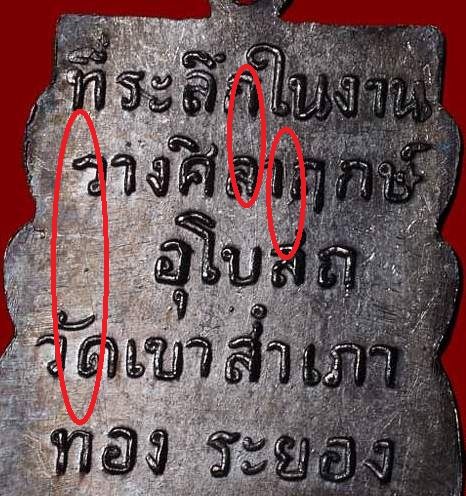 ที่ระลึกในงาน
วางศิลาฤกษ์
อุโบสถ
วัดเขาสำเภา
ทอง ระยอง